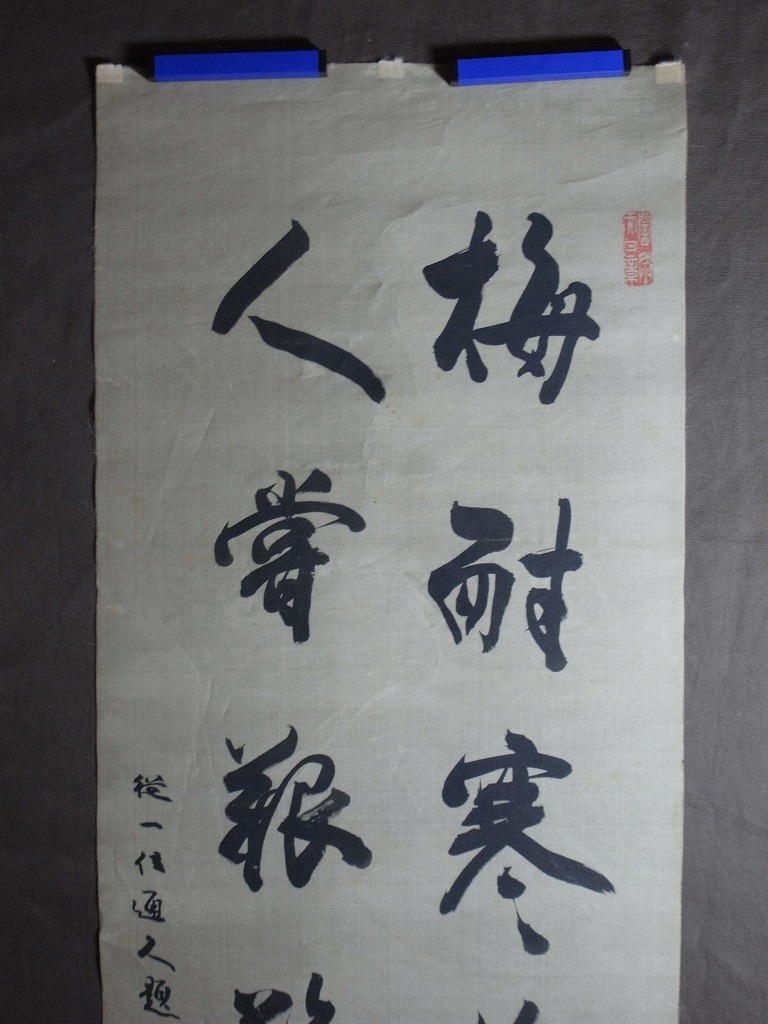 梅耐寒
人嘗艱
從一位通久題